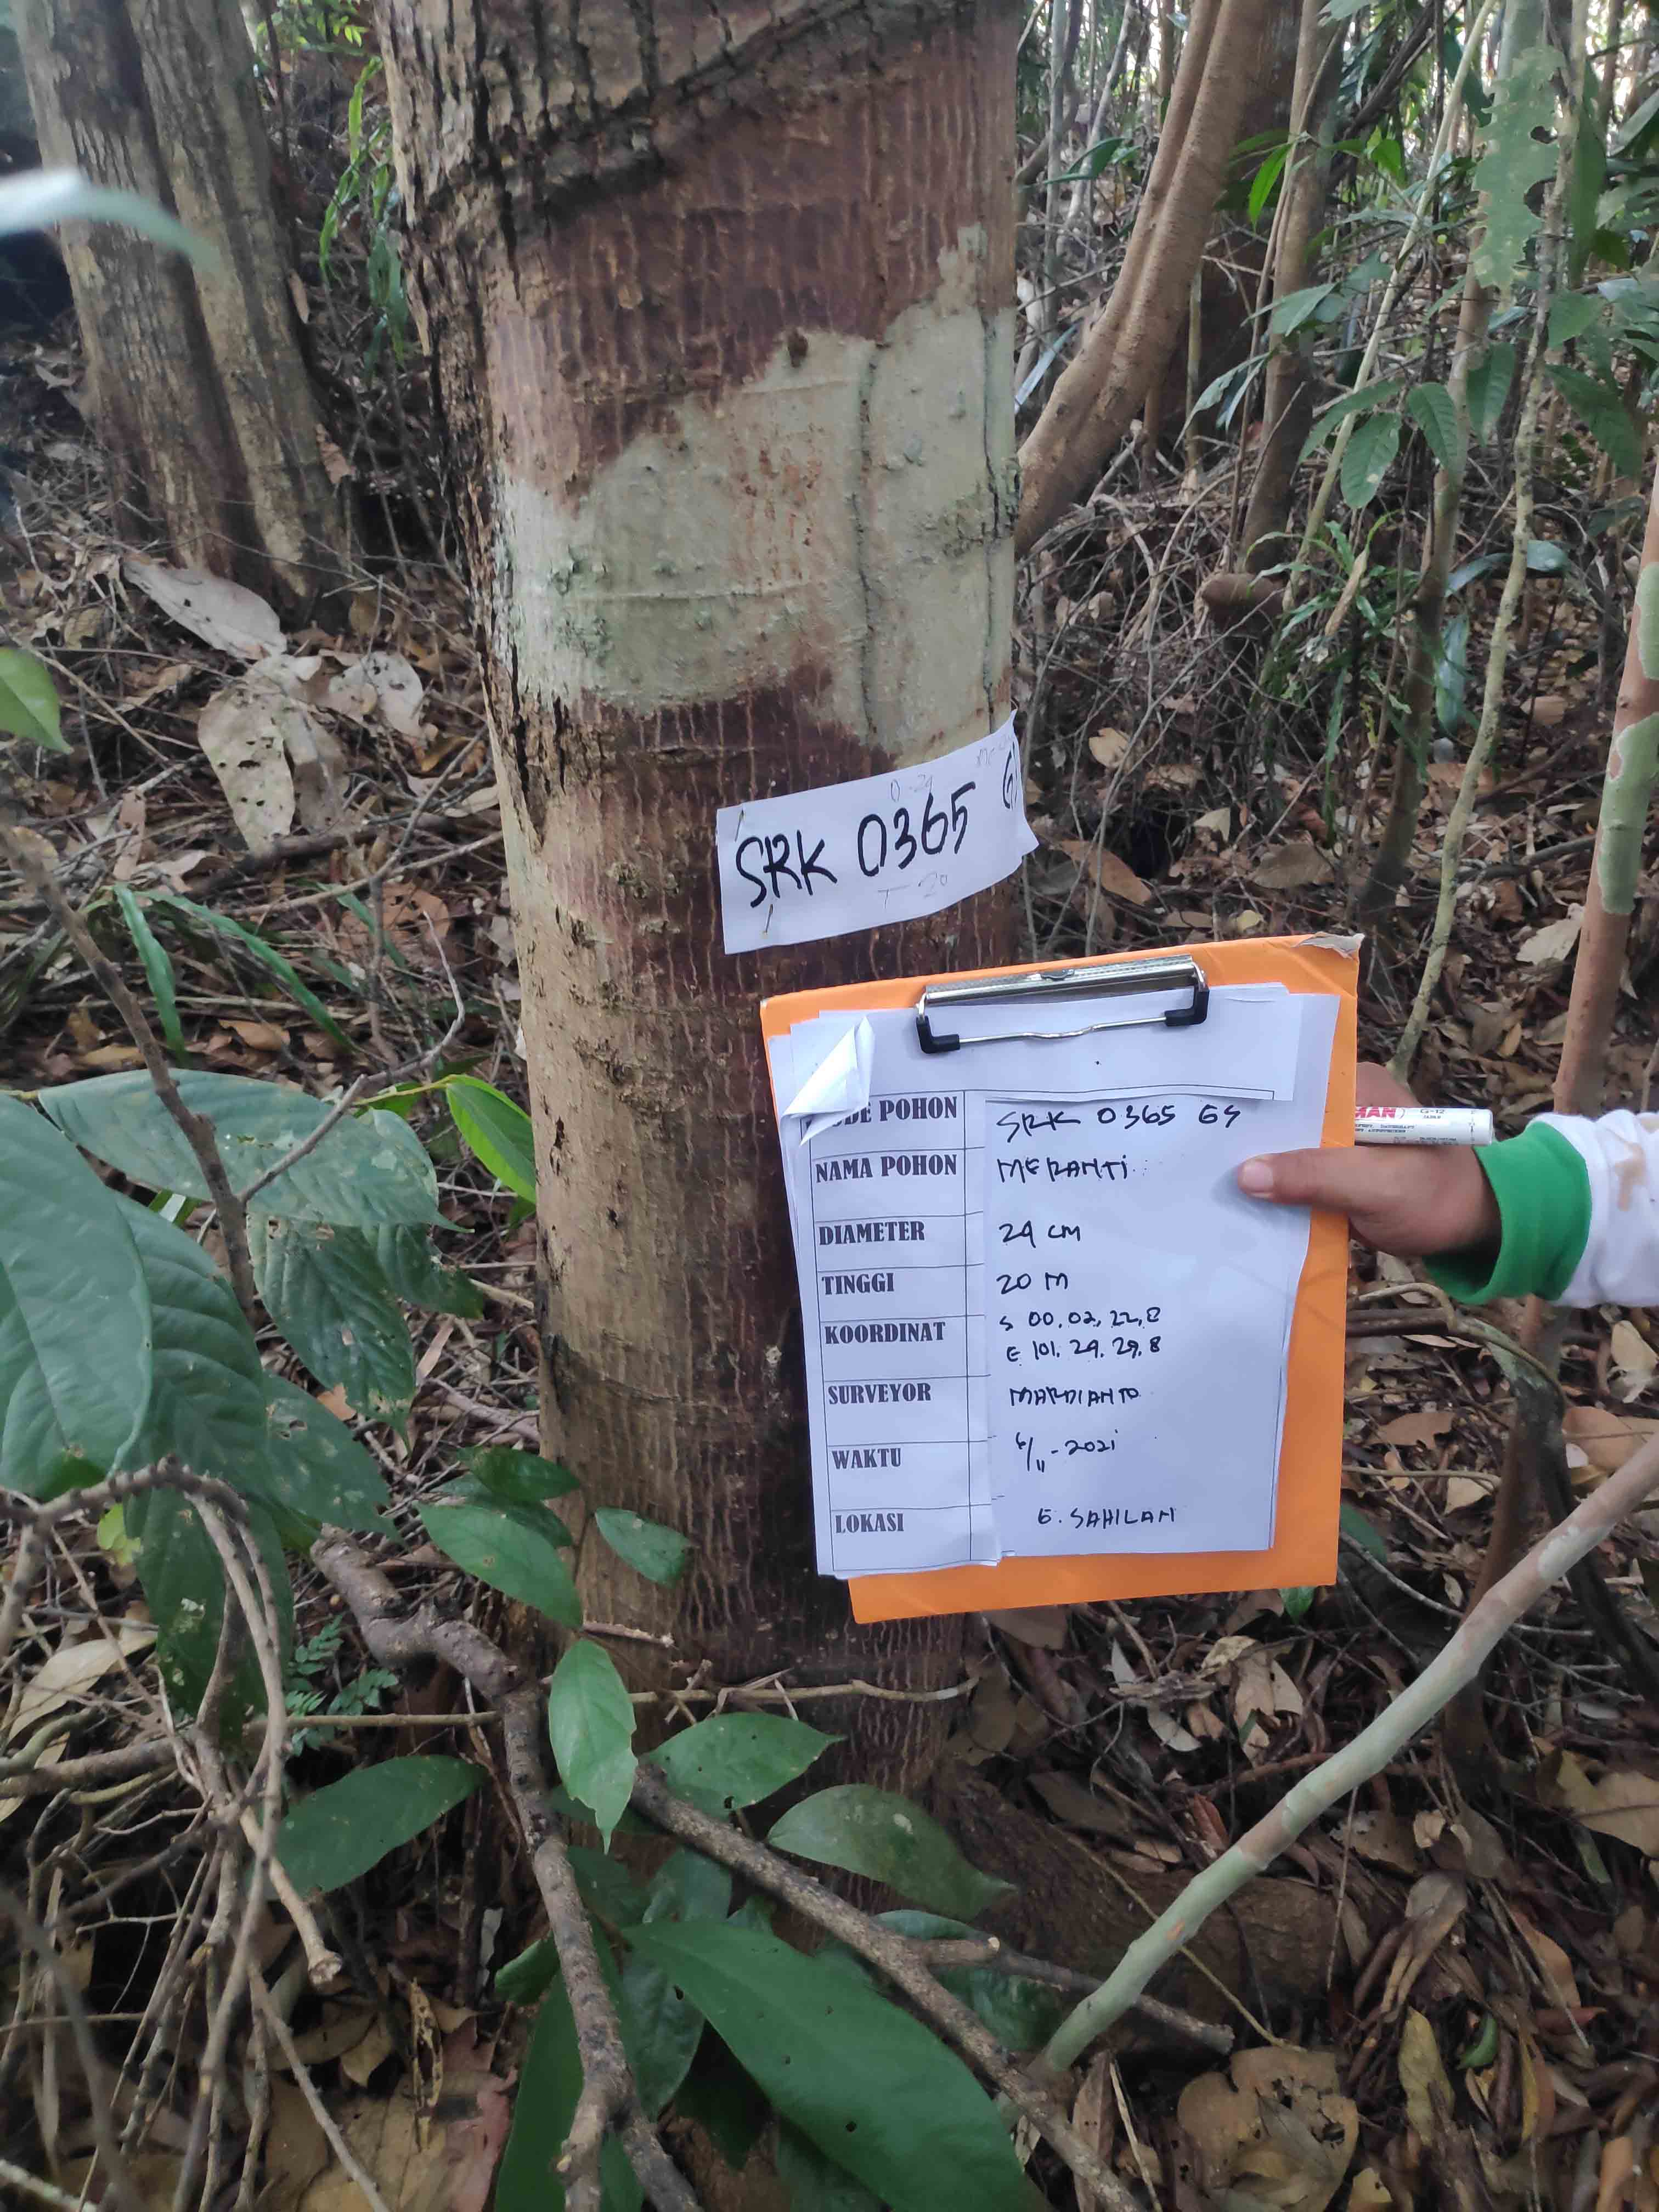 SRK 0365
T 20
KODE POHON SRK 0365 GS
NAMA POHON MERANTI
DIAMETER 29 CM
TINGGI 20 M
KOORDINAT S 00. 02. 22,8
E 101. 29. 29. 8
SURVEYOR MARDIANTO
WAKTU 6/11-2021
LOKASI G. SAHILAN